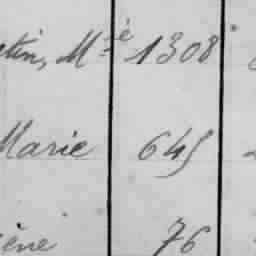 tin, Mie 1308
Marie 645
ène 76